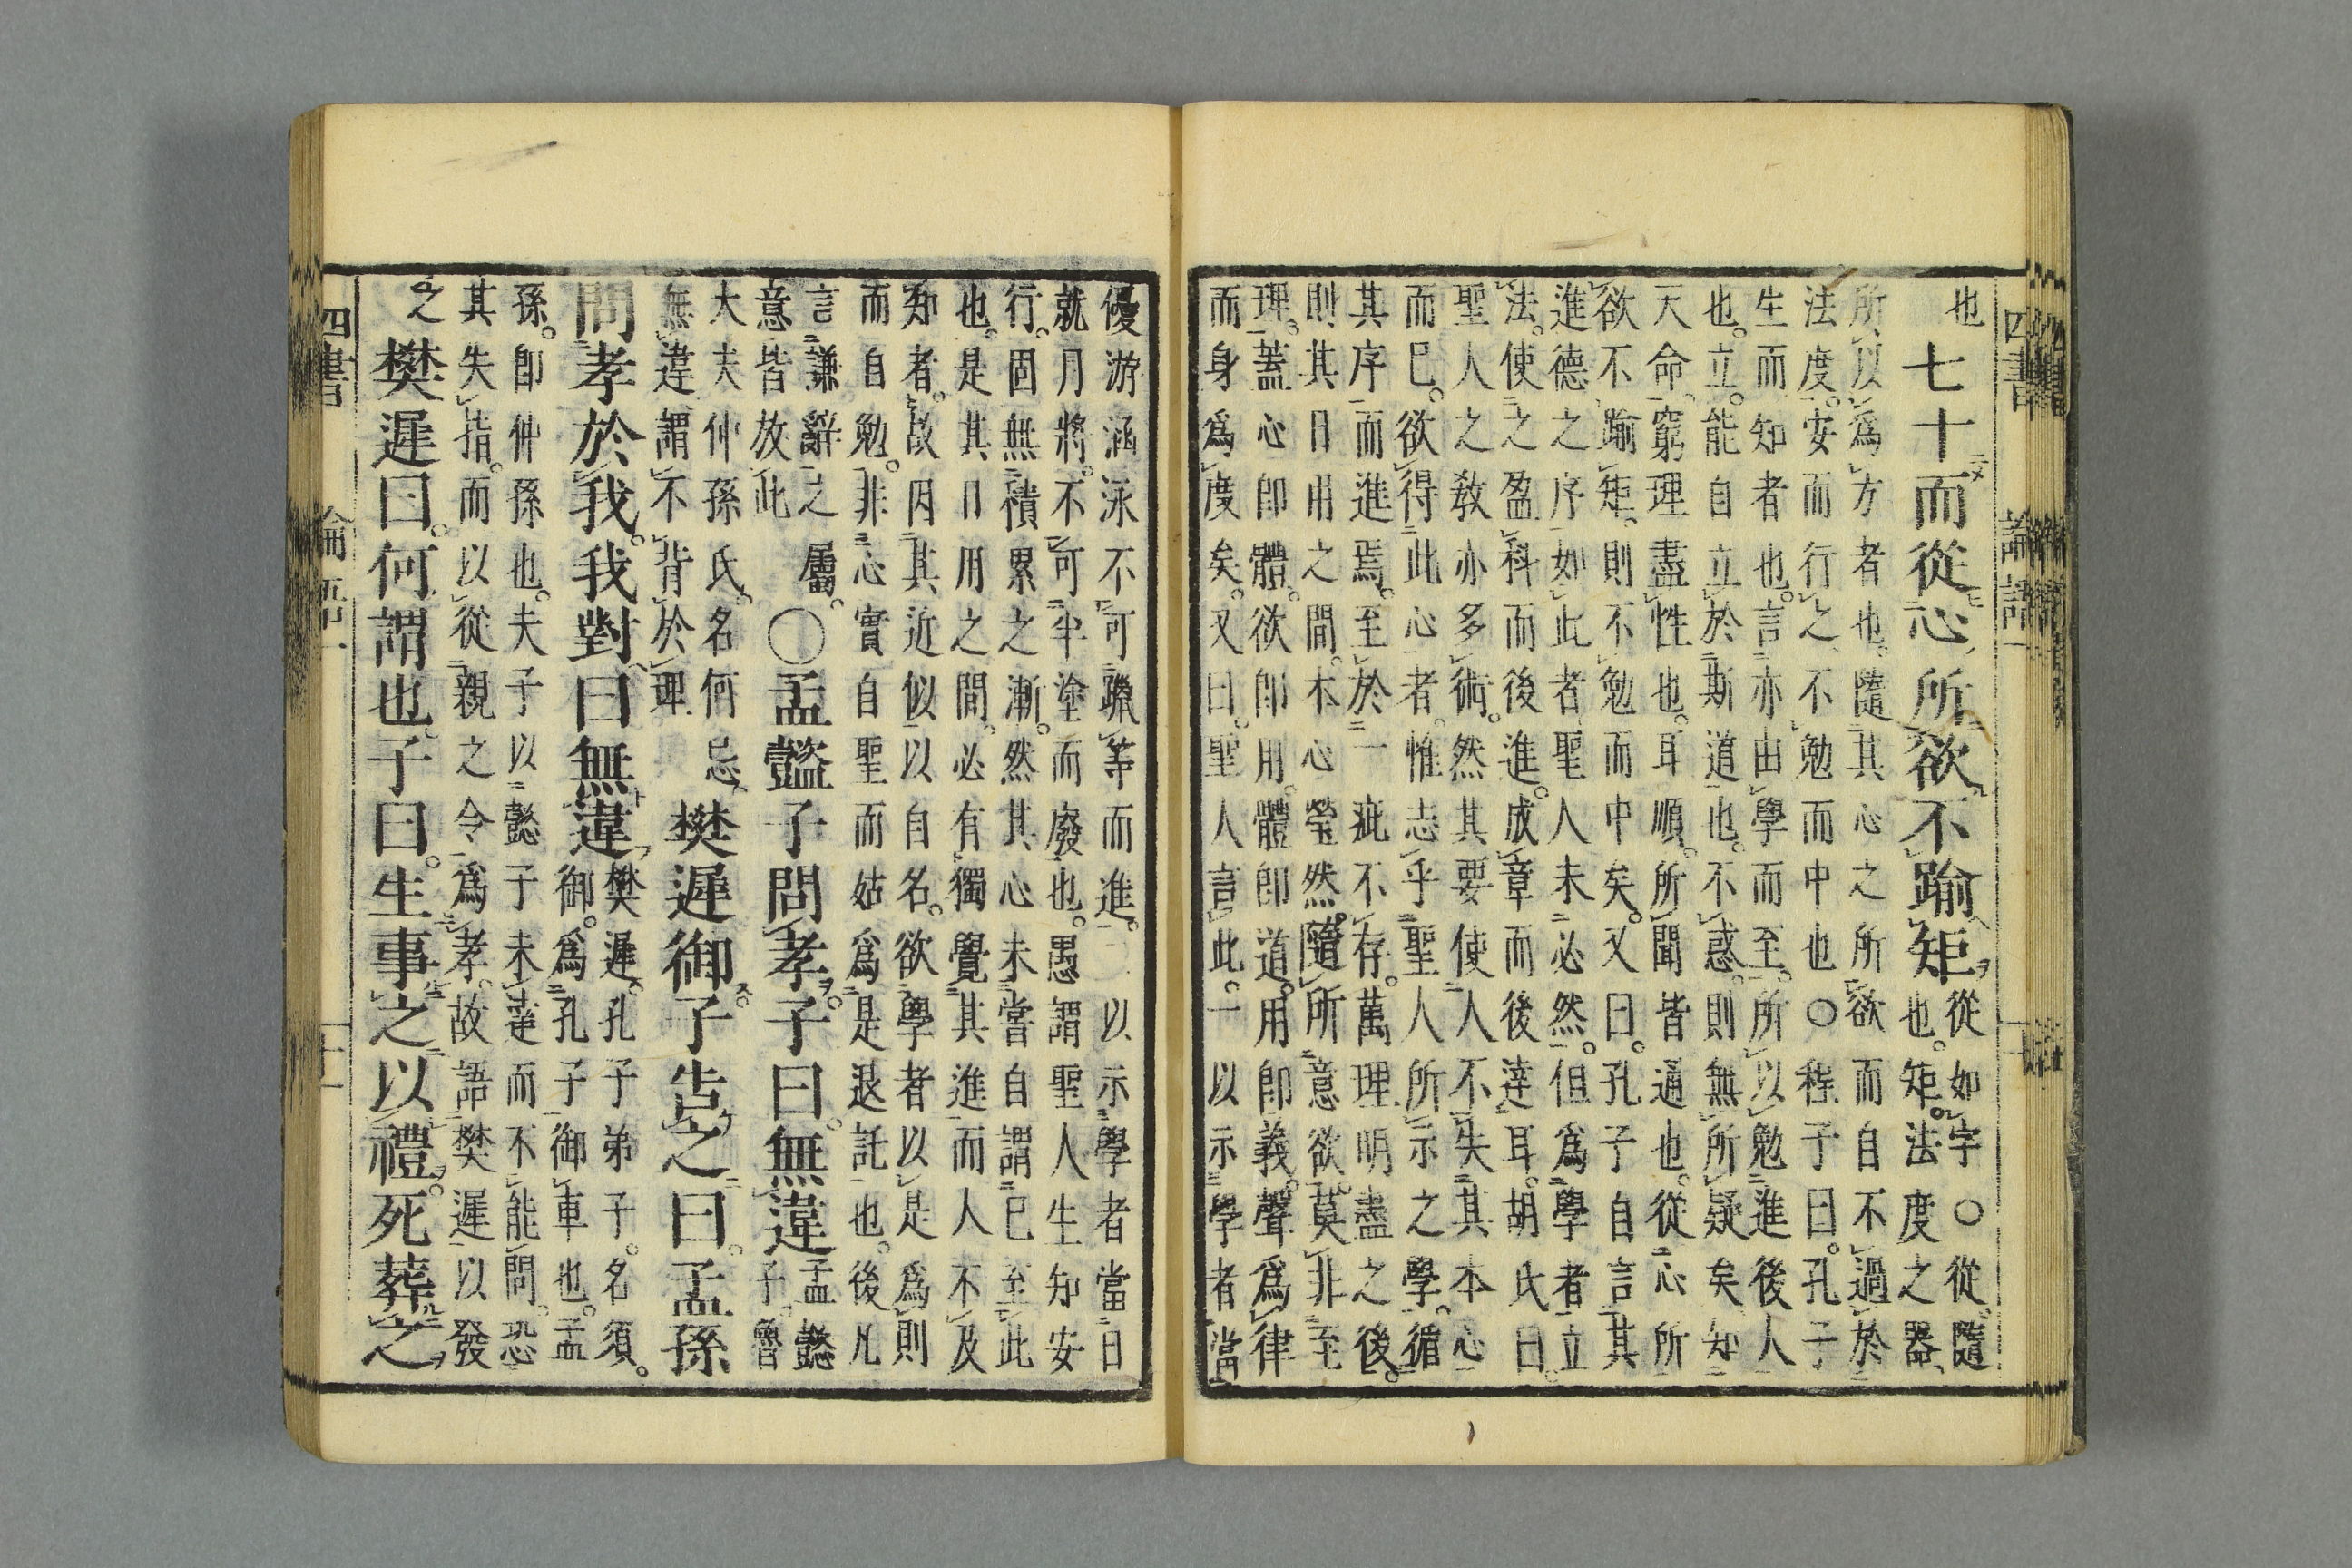 四書 論語一
也
七十而從心所欲不踰矩
從如字○從隨
也矩法度之器
所以爲方者也隨其心之所欲而自不過於
法度安而行之不勉而中也○程子曰孔子
生而知者也言亦由學而至所以勉進後人
也立能自立於斯道也不惑則無所疑矣知
天命窮理盡性也耳順所聞皆通也從心所
欲不踰矩則不勉而中矣又曰孔子自言其
進德之序如此者聖人未必然但爲學者立
法使之盈科而後進成章而後達耳胡氏曰
聖人之教亦多術然其要使人不失其本心
而已欲得此心者惟志乎聖人所示之學循
其序而進焉至於一疵不存萬理明盡之後
則其日用之間本心瑩然隨所意欲莫非至
理蓋心卽體欲卽用體卽道用卽義聲爲律
而身爲度矣又曰聖人言此一以示學者當
優游涵泳不可躐等而進二以示學者當日
就月將不可半塗而廢也愚謂聖人生知安
行固無積累之漸然其心未嘗自謂已至此
也是其日用之間必有獨覺其進而人不及
知者故因其近似以自名欲學者以是爲則
而自勉非心實自聖而姑爲是退託也後凡
言謙辭之屬
意皆放此
○孟懿子問孝子曰無違
孟懿
子魯
大夫仲孫氏名何忌
無違謂不背於理
樊遲御子告之曰孟孫
問孝於我我對曰無違
樊遲孔子弟子名須
御爲孔子御車也孟
孫卽仲孫也夫子以懿子未達而不能問恐
其失指而以從親之令爲孝故語樊遲以發
之
樊遲曰何謂也子曰生事之以禮死葬之
四書 論語一